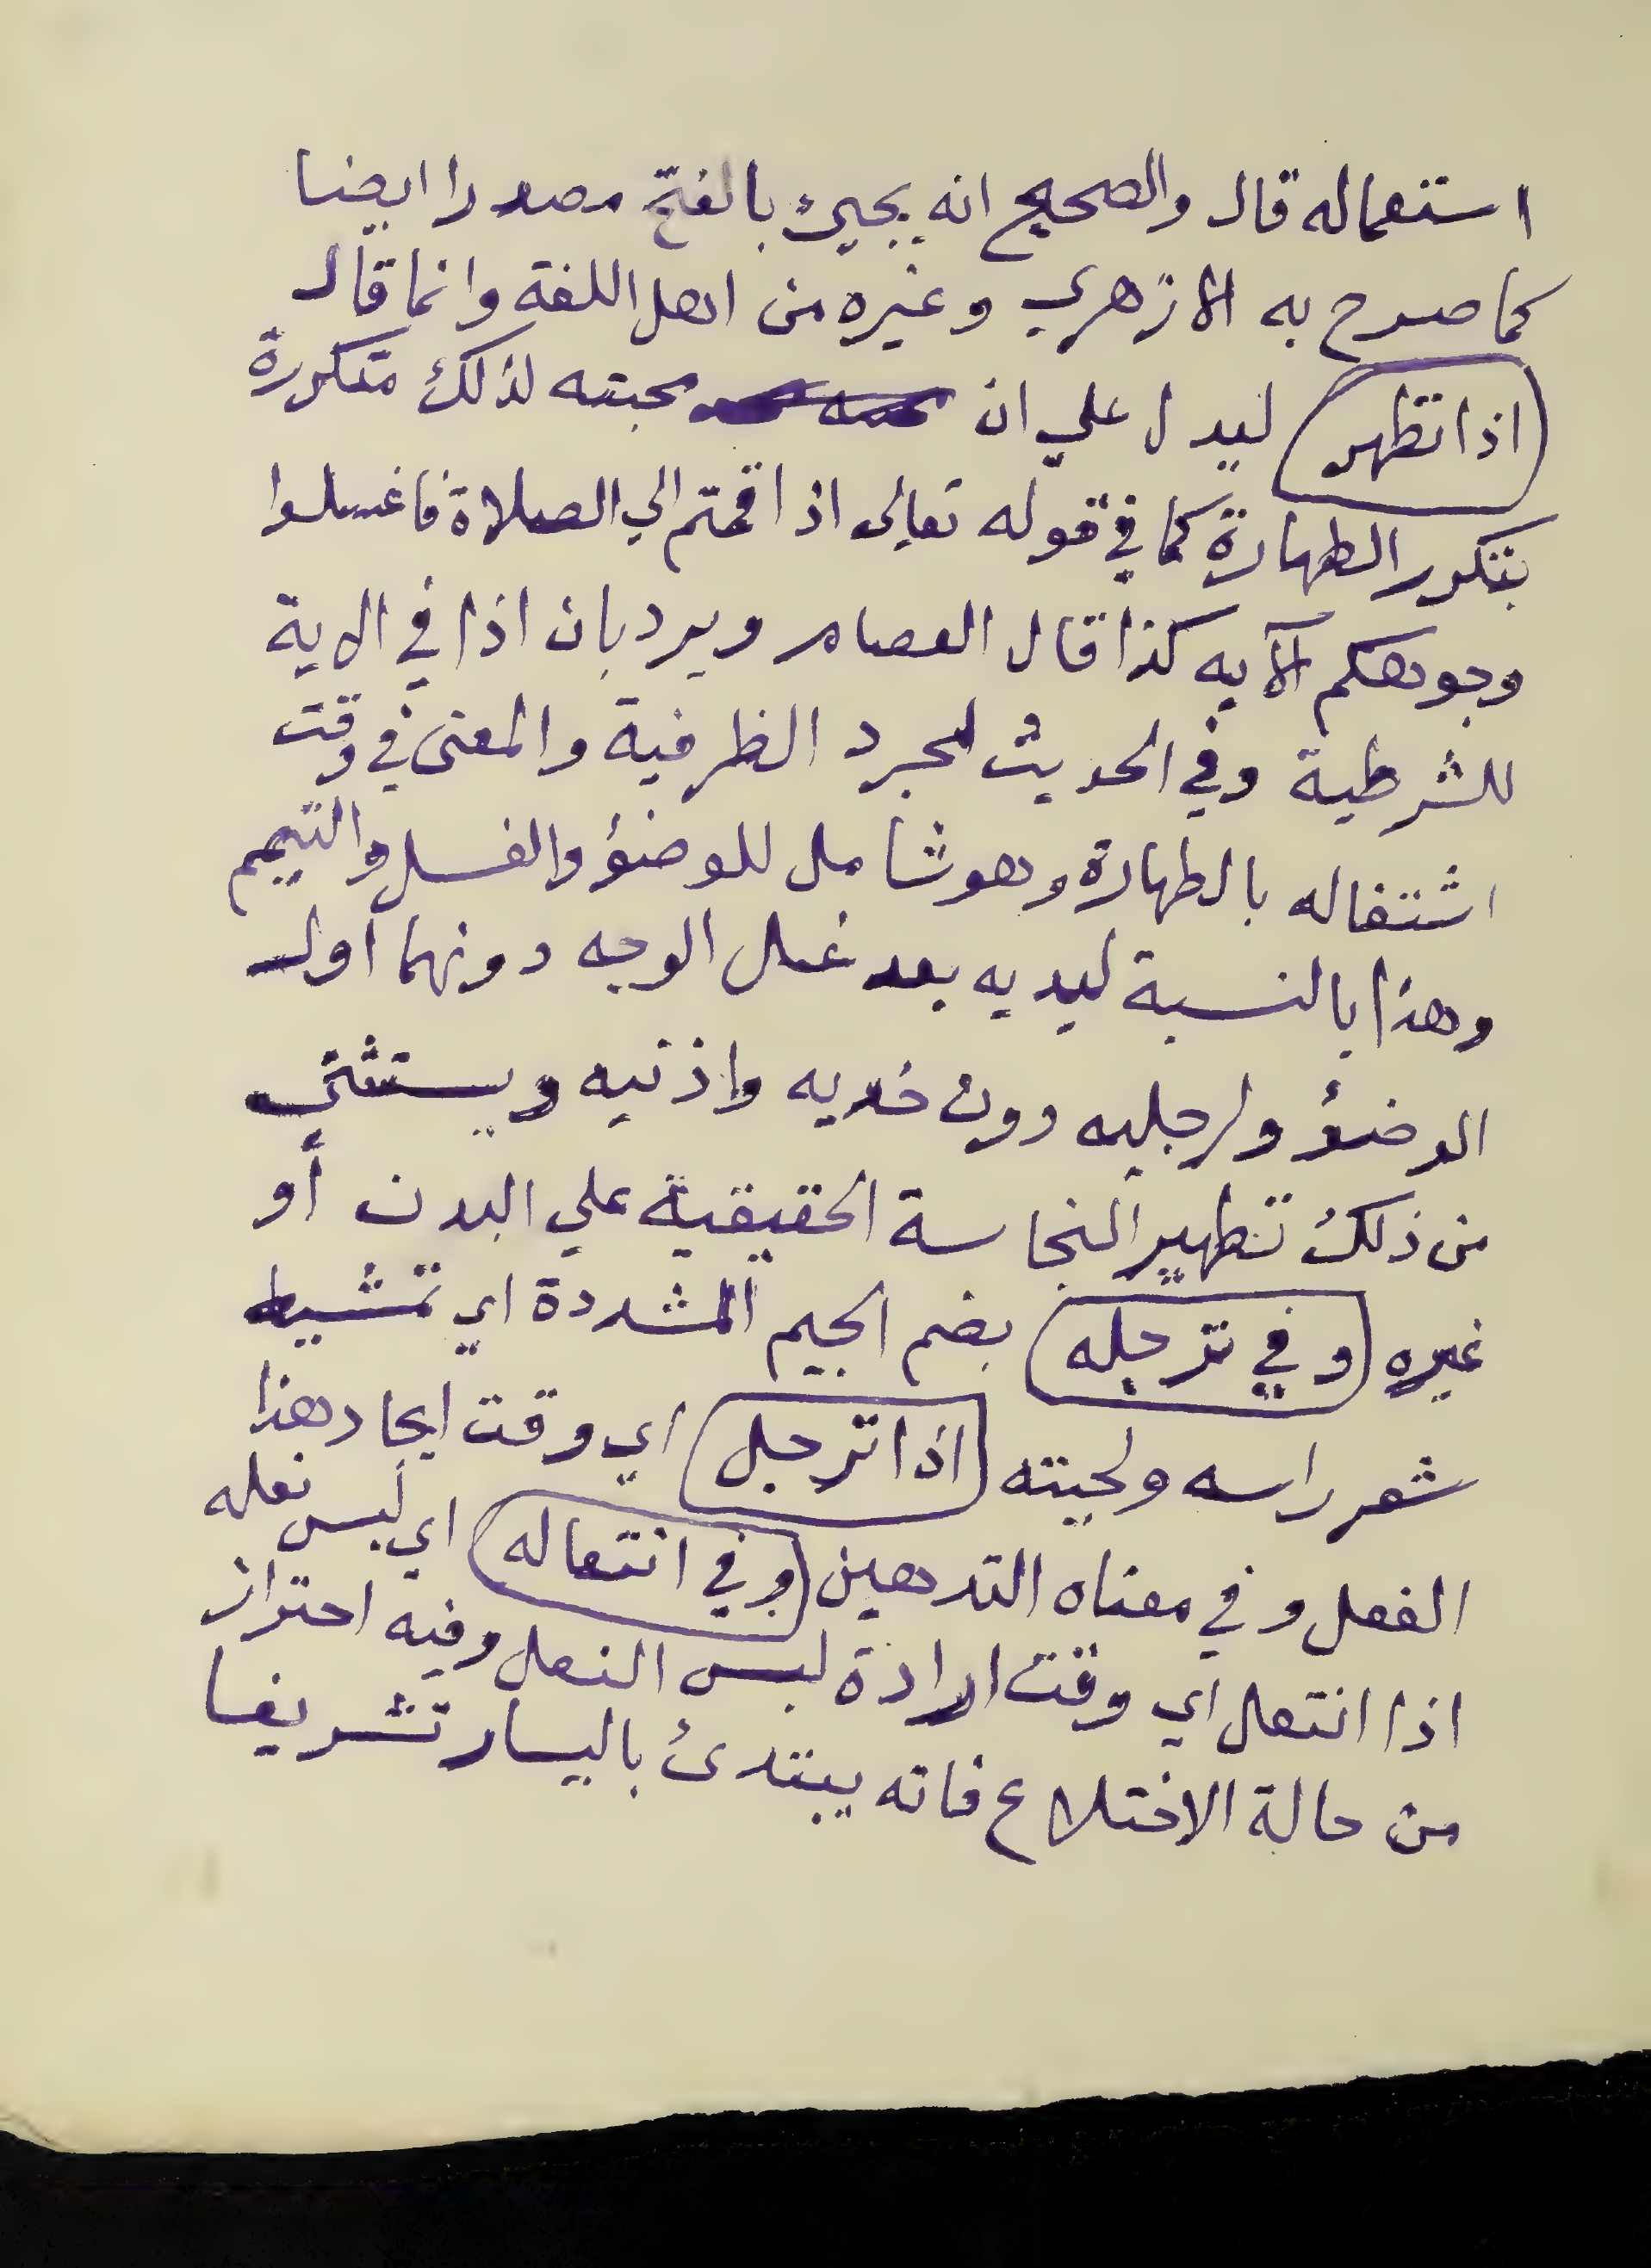 استعماله قال والصحيح انه يجيئ بالفتح مصدرا ايضا
كما صرح به الازهري وغيره من اهل اللغة وانما قال
اذا تطهر ليدل علي ان محبته لذلك متكررة
بتكرر الطهارة كما في قوله تعالى اذا قمتم الي الصلاة فاغسلوا
وجوهكم الآيه كذا قال العصام ويرد بان اذا في الاية
للشرطية وفي الحديث لمجرد الظرفية والمعنى في وقت
اشتغاله بالطهارة وهو شامل للوضؤ والغسل والتيمم
وهذا بالنسبة ليديه بعد غسل الوجه دونهما أول
الوضؤ ولرجليه دون خديه واذنيه ويستثني
من ذلك تطهير النجاسة الحقيقية علي البدن أو
غيره وفي ترجله بضم الجيم المشددة اي تمشيط
شعر راسه ولحيته اذا ترجل اي وقت ايجاد هذا
الفعل وفي معناه التدهين وفي انتعاله اي لبس نعله
اذا انتعل اي وقت ارادة لبس النعل وفيه احتراز
من حالة الاختلاع فانه يبتدئ باليسار تشريفا